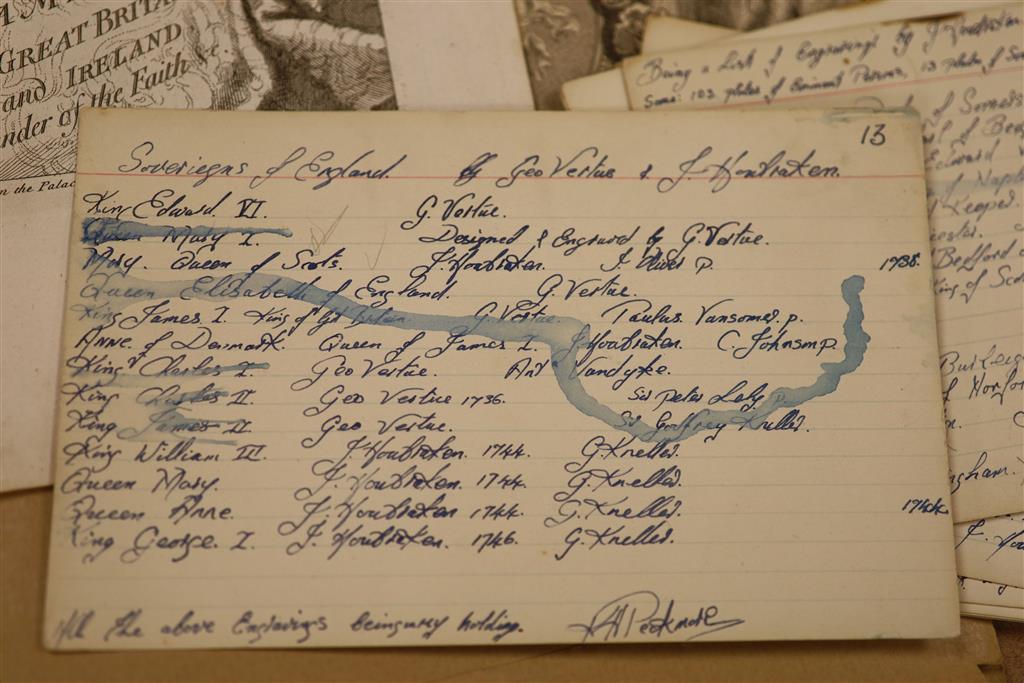 GREAT BRITA
and IRELAND
nder of the Faith &c.
on the Palac
Being a List of Engravings by J. Houbraken
Sums: 103 plates of Eminent Persons, 13 plates of
13
Soveriegns of England by Geo Vertue & J. Houbraken.
King Edward VI. G. Vertue.
Queen Mary I. Designed & Engraved by G. Vertue.
Mary. Queen of Scots. J. Houbraken. J. Oliver p. 1738.
Queen Elisabeth of England. G. Vertue.
King James I. King of Gt Britain. G. Vertue. Paulus Vansomer. p.
Anne of Denmark. Queen of James I. J. Houbraken C. Johnson p.
King Charles I. Geo Vertue. Ant Vandyke.
King Charles II. Geo Vertue 1736. Sir Peter Lely p.
King James II. Geo Vertue. Sir Godfrey Kneller.
King William III. J. Houbraken. 1744. G. Kneller.
Queen Mary. J. Houbraken. 1744. G. Kneller.
Queen Anne. J. Houbraken 1744. G. Kneller. 1744.
King George. I. J. Houbraken. 1746. G. Kneller.
All the above Engravings being my holding.